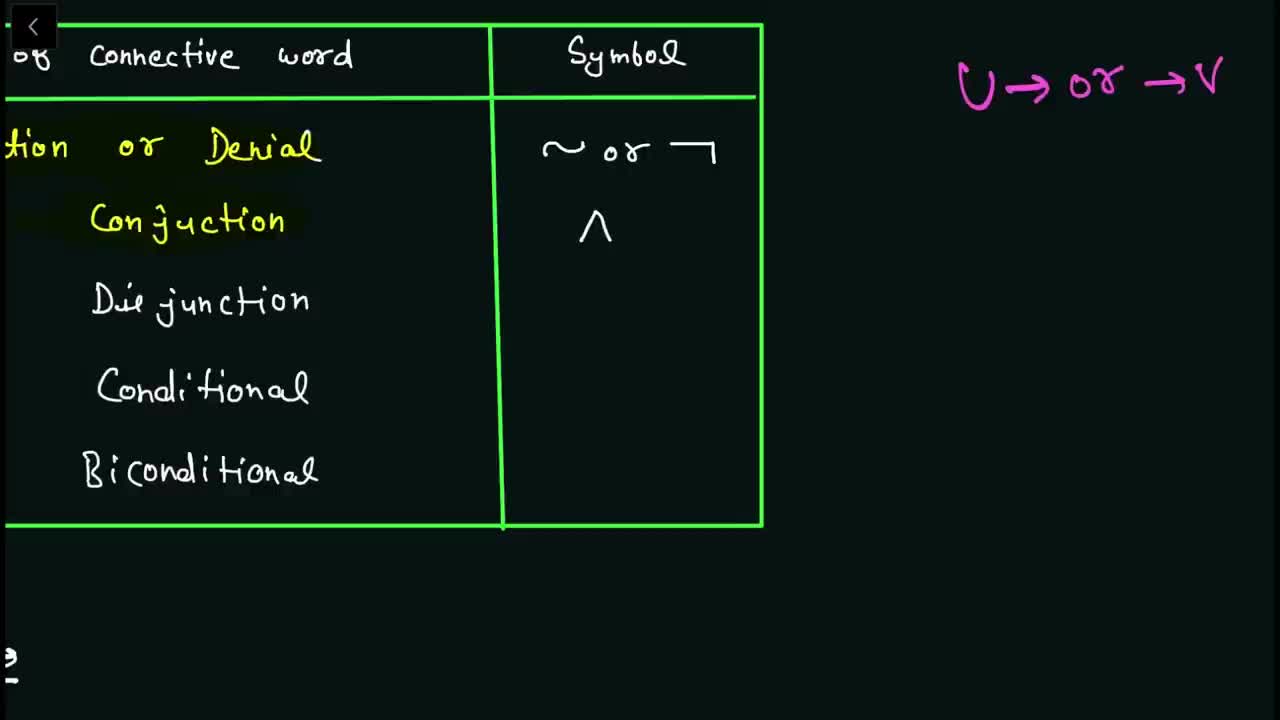 of connective word Symbol
U → or → V
tion or Denial ~ or ¬
Conjuction ∧
Disjunction
Conditional
Biconditional